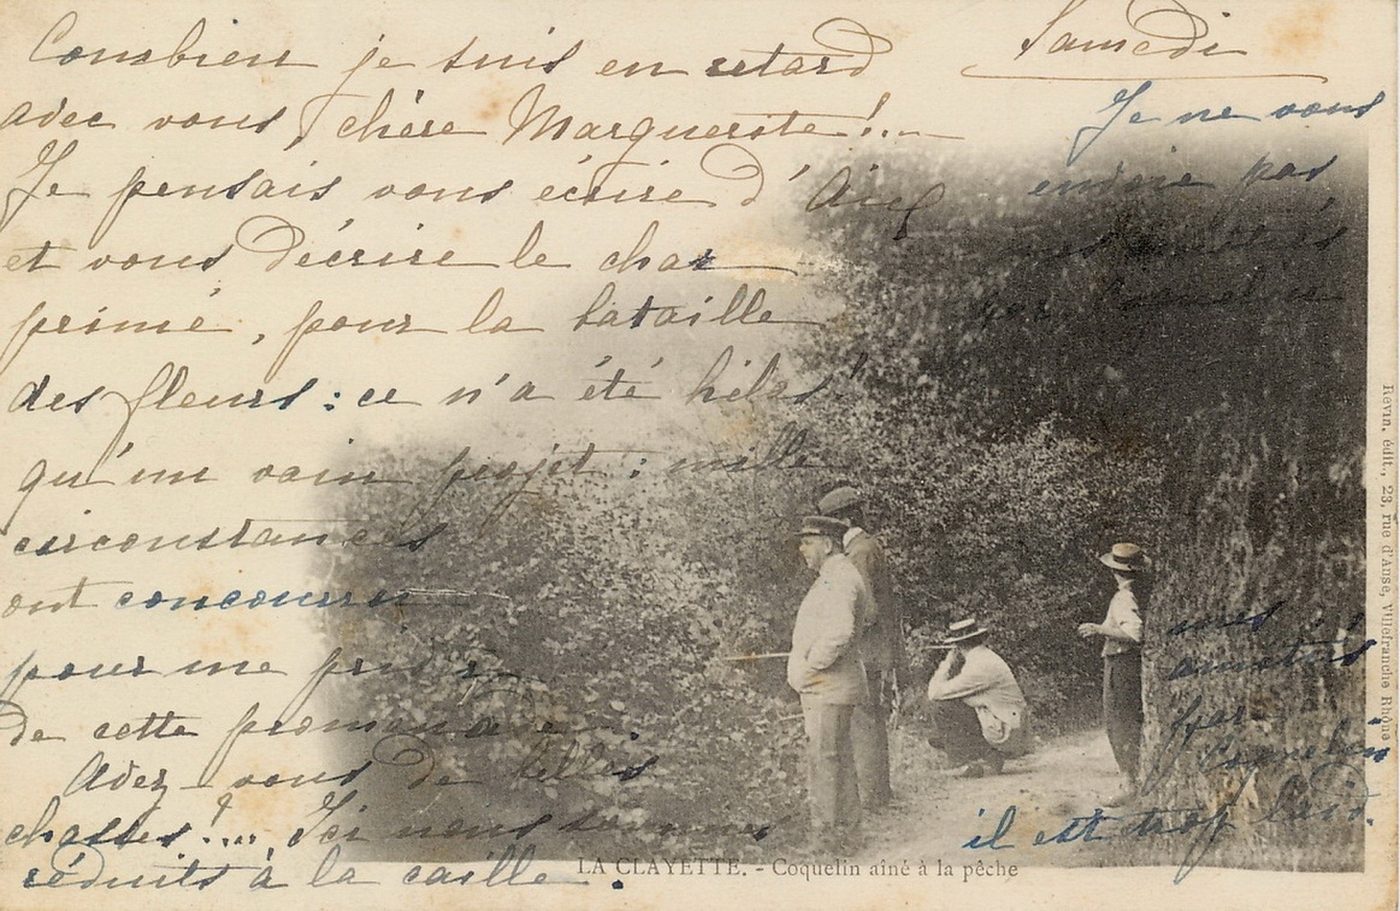 Samedi
Combien je suis en retard
avec vous, chère Marguerite !...
Je pensais vous écrire d'Aix
et vous décrire le char
primé, pour la bataille
des fleurs : ce n'a été hélas !
qu'un vain projet : mille
circonstances
ont concouru
pour me priver
de cette promenade
Avez-vous de belles
chasses ?... Ici nous sommes
réduits à la caille.
Je ne vous
envoie pas
mes amitiés
par Coquelin
mes
amitiés
par
Coquelin
il est trop laid.
LA CLAYETTE. - Coquelin aîné à la pêche
Revin, édit., 23, rue d'Anse, Villefranche Rhône